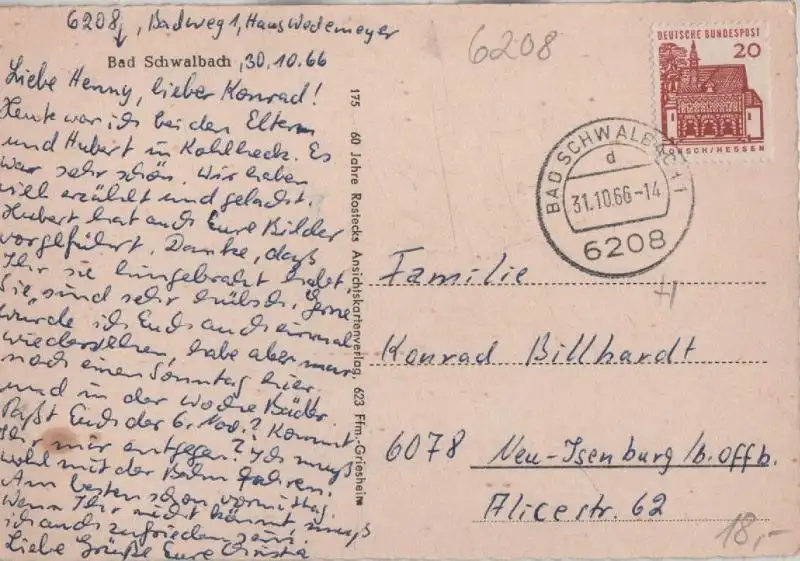 6208, Badweg 1, Hans Wedemeyer
Bad Schwalbach, 30.10.66
Liebe Henny, lieber Konrad!
Heute war ich bei den Eltern
und Hubert in Kohlheck. Es
war sehr schön. Wir haben
viel erzählt und gelacht.
Hubert hat auch Eure Bilder
vorgeführt. Danke, daß
Ihr sie hingebracht habt,
Sie sind sehr hübsch. Gerne
würde ich Euch auch einmal
wiedersehen, habe aber nur
noch einen Sonntag hier,
und in der Woche Bäder.
Paßt Euch der 6. Nov.? Kommt
Ihr mir entgegen? Ich muß
wohl mit der Bahn fahren.
Am besten schon vormittag.
Wenn Ihr nicht könnt, muß
ich auch zufrieden sein.
Liebe Grüße Eure Christa
175 60 Jahre Rostecks Ansichtskartenverlag, 623 Ffm.-Griesheim
6208
DEUTSCHE BUNDESPOST
20
LORSCH/HESSEN
BAD SCHWALBACH 1
d
31.10.66-14
6208
Familie
Konrad Billhardt
6078 Neu-Isenburg/b. Offb.
Alicestr. 62
18,-